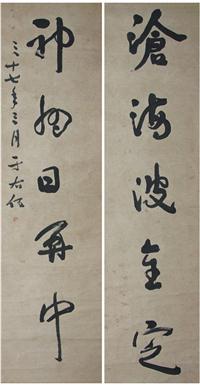 滄海波全定
神州日再中
三十七年三月 于右任